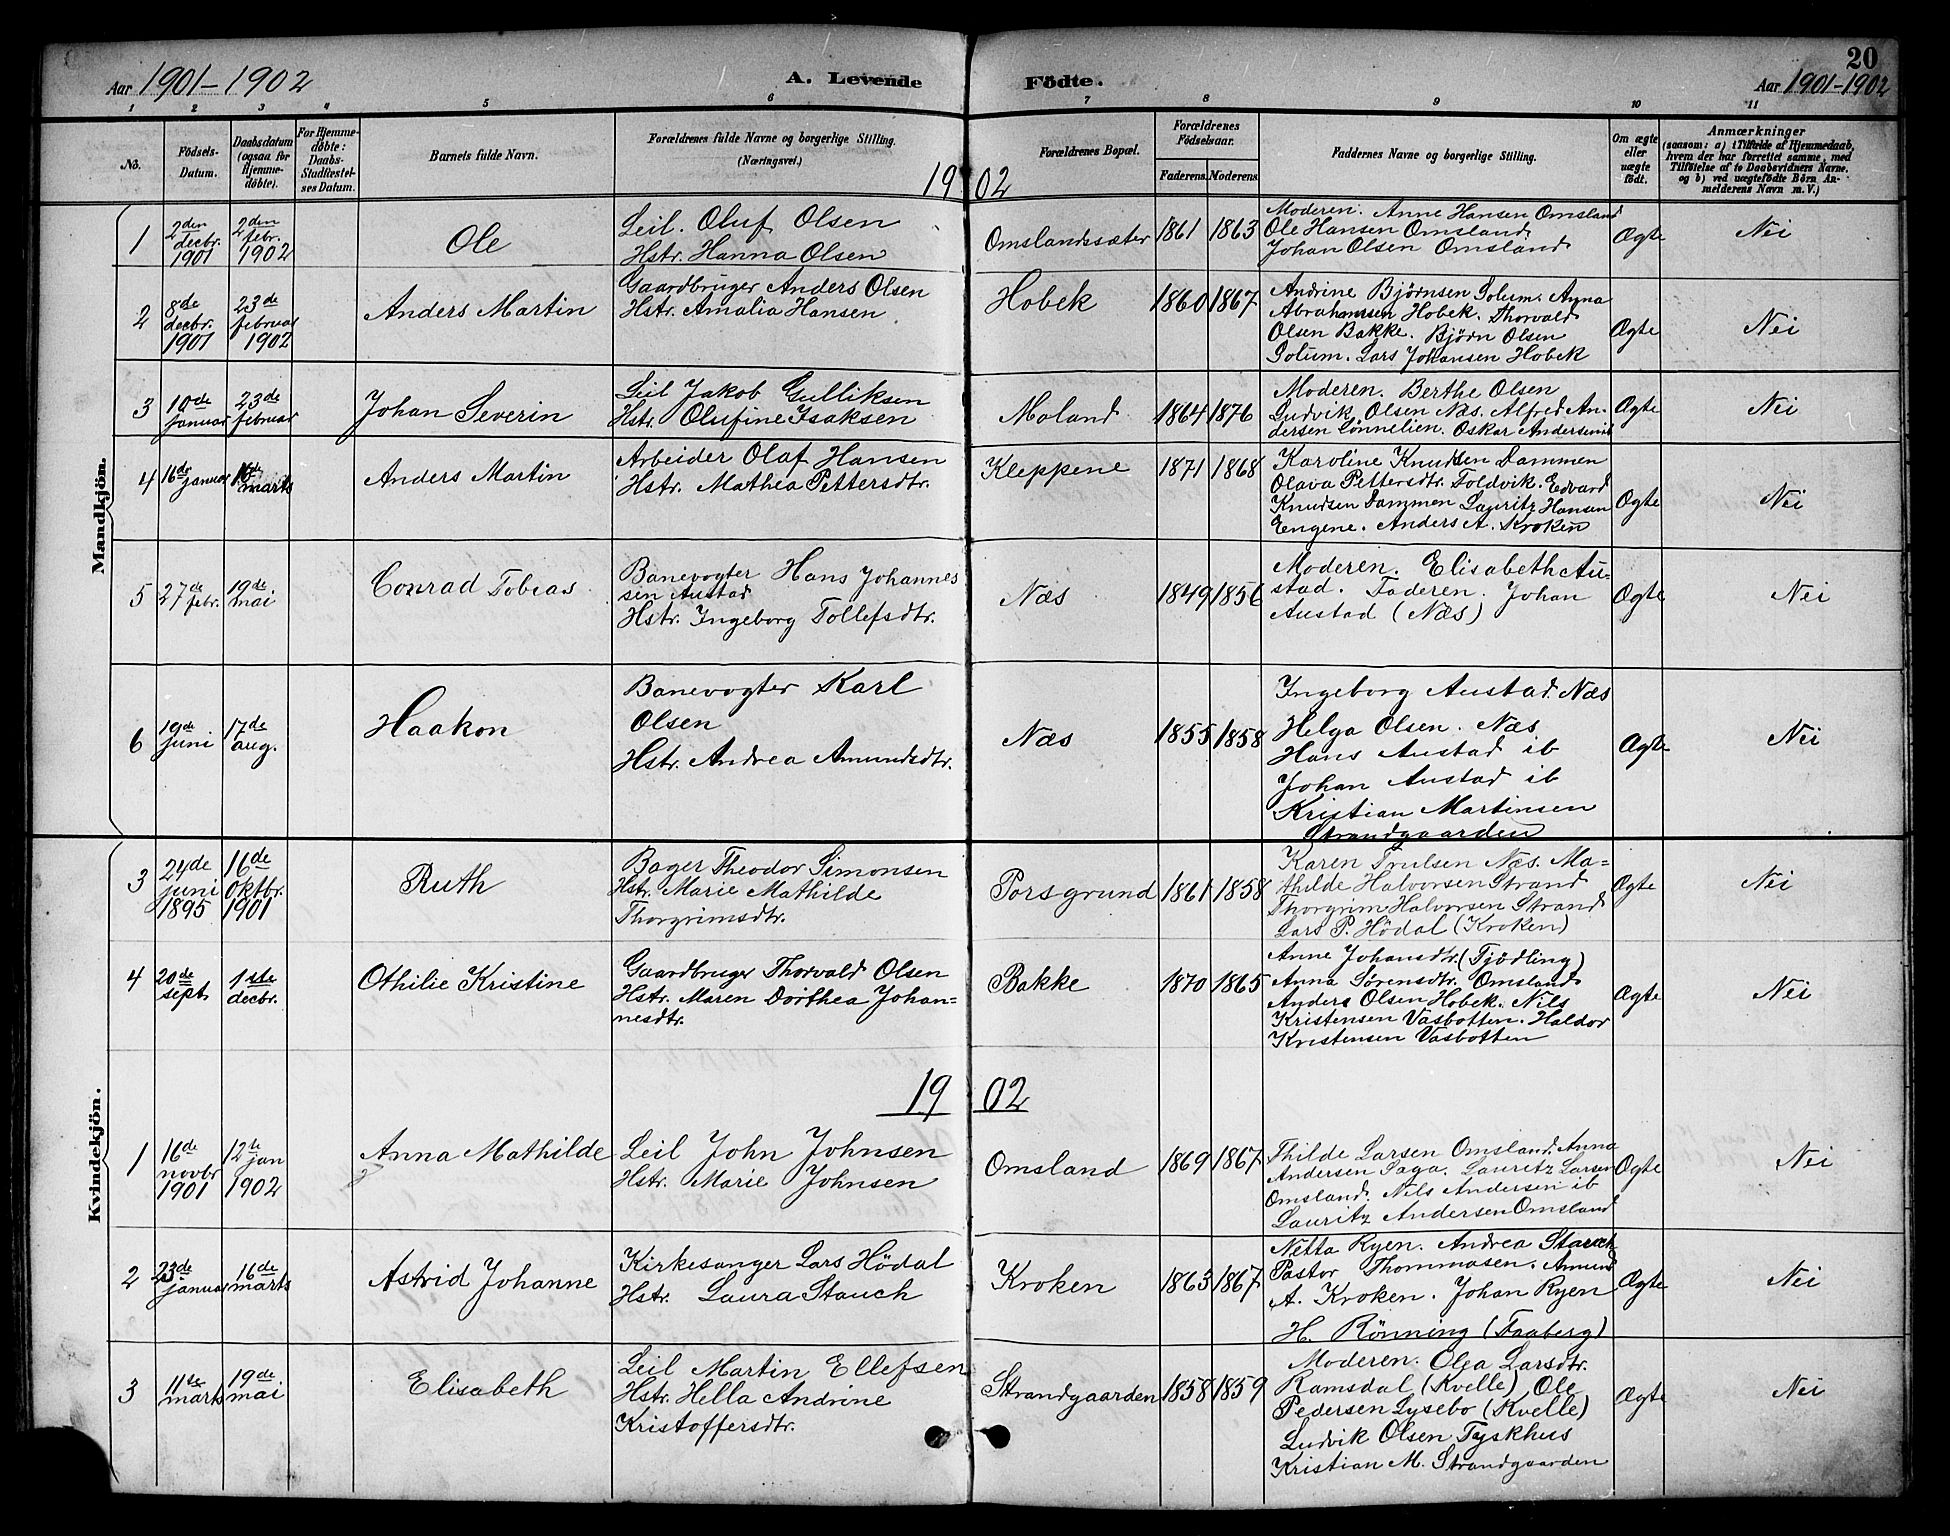 20
Aar 1901-1902
A. Levende Födte.
Aar 1901-1902
1 2 3 4 5 6 7 8 9 10 11
No.
Födsels-Datum.
Daabsdatum (ogsaa for Hjemme-döbte).
For Hjemme-döbte: Daabs-Stadfæstel-ses Datum.
Barnets fulde Navn.
Forældrenes fulde Navne og borgerlige Stilling.
(Næringsvei.)
Forældrenes Bopæl.
Forældrenes Födselsaar.
Faderens. Moderens.
Faddernes Navne og borgerlige Stilling.
Om ægte eller uægte födt.
Anmærkninger
(saasom: a) i Tilfælde af Hjemmedaab, hvem der har forrettet samme, med Tilföielse af to Daabsvidners Navne, og b) ved uægtefödte Börn An-melderens Navn m. V.)
1902
Mandkjön.
1
2den decbr. 1901
2den febr. 1902
Ole
Leil. Oluf Olsen
Hstr. Hanna Olsen
Omslandssæter
1861 1863
Moderen. Anne Hansen Omsland
Ole Hansen Omsland
Johan Olsen Omsland
Ægte
Nei
2
8de decbr. 1901
23de februar 1902
Anders Martin
Gaardbruger Anders Olsen
Hstr. Amalia Hansen
Hobek
1860 1867
Andrine Bjørnsen Solum. Anna
Abrahamsen Hobek. Thorvald
Olsen Bakke. Bjørn Olsen
Solum. Lars Johansen Hobek
Ægte
Nei
3
10de Januar
23de februar
Johan Severin
Leil Jakob Gulliksen
Hstr. Olufine Isaksen
Moland
1864 1876
Moderen. Berthe Olsen
Ludvik Olsen Næs. Alfred An-
dersen Lønnelien. Oskar Andersen ib
Ægte
Nei
4
16de januar
16de marts
Anders Martin
Arbeider Olaf Hansen
Hstr. Mathea Pettersdtr.
Kleppene
1871 1868
Karoline Knudsen Dammen
Olava Pettersdtr. Foldvik. Edvard
Knudsen Dammen Lauritz Hansen
Engene. Anders A. Kroken
Ægte
Nei
5
27de febr.
19de mai
Conrad Tobias
Banevogter Hans Johannes
sen Austad
Hstr. Ingeborg Tollefsdtr.
Næs
1849 1856
Moderen. Elisabeth Au-
stad. Faderen. Johan
Austad (Næs)
Ægte
Nei
6
19de juni
17de aug.
Haakon
Banevogter Karl
Olsen
Hstr. Andrea Amundsdtr.
Næs
1855 1858
Ingeborg Austad Næs
Helga Olsen. Næs
Hans Austad ib
Johan Austad ib
Kristian Martinsen
Strandgaarden
Ægte
Nei
Kvindekjön.
3
24de juni 1895
16de Oktbr. 1901
Ruth
Bager Theodor Simonsen
Hstr. Marie Mathilde
Thorgrimsdtr.
Porsgrund
1861 1858
Karen Trulsen Næs. Ma-
thilde Halvorsen Strand
Thorgrim Halvorsen Strand
Lars P. Hödal (Kroken)
Ægte
Nei
4
20de sept.
1ste decbr.
Othilie Kristine
Gaardbruger Thorvald Olsen
Hstr. Maren Dorthea Johan-
nesdtr.
Bakke
1870 1865
Anne Johansdtr. (Tjödling)
Anna Sørensdtr. Omsland
Anders Olsen Hobek. Nils
Kristensen Vasbotten. Haldor
Kristensen Vasbotten
Ægte
Nei
1902
1
16de novbr 1901
12te jan 1902
Anna Mathilde
Leil John Johnsen
Hstr. Marie Johnsen
Omsland
1869 1867
Thilde Larsen Omsland. Anna
Andersen Saga. Lauritz Larsen
Omsland. Nils Andersen ib
Lauritz Andersen Omsland
Ægte
Nei
2
23de januar
16de marts
Astrid Johanne
Kirkesanger Lars Hödal
Hstr. Laura Stauch
Kroken
1863 1867
Netta Ryen. Andrea Stauch
Pastor Thommasen. Amund
A. Kroken. Johan Ryen
H. Rönning (Faaberg)
Ægte
Nei
3
11te marts
19de mai
Elisabeth
Leil Martin Ellefsen
Hstr. Hella Andrine
Kristoffersdtr.
Strandgaarden
1858 1859
Moderen. Olea Larsdtr.
Ramsdal (Kvelle) Ole
Pedersen Lysebo (Kvelle)
Ludvik Olsen Tyskhus
Kristian M. Strandgaarden
Ægte
Nei